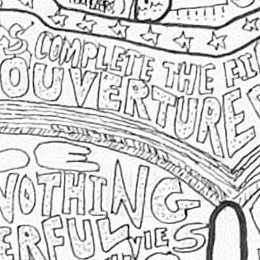 COMPLETE THE
OUVERTURE
NOTHING
ERFUL VIES